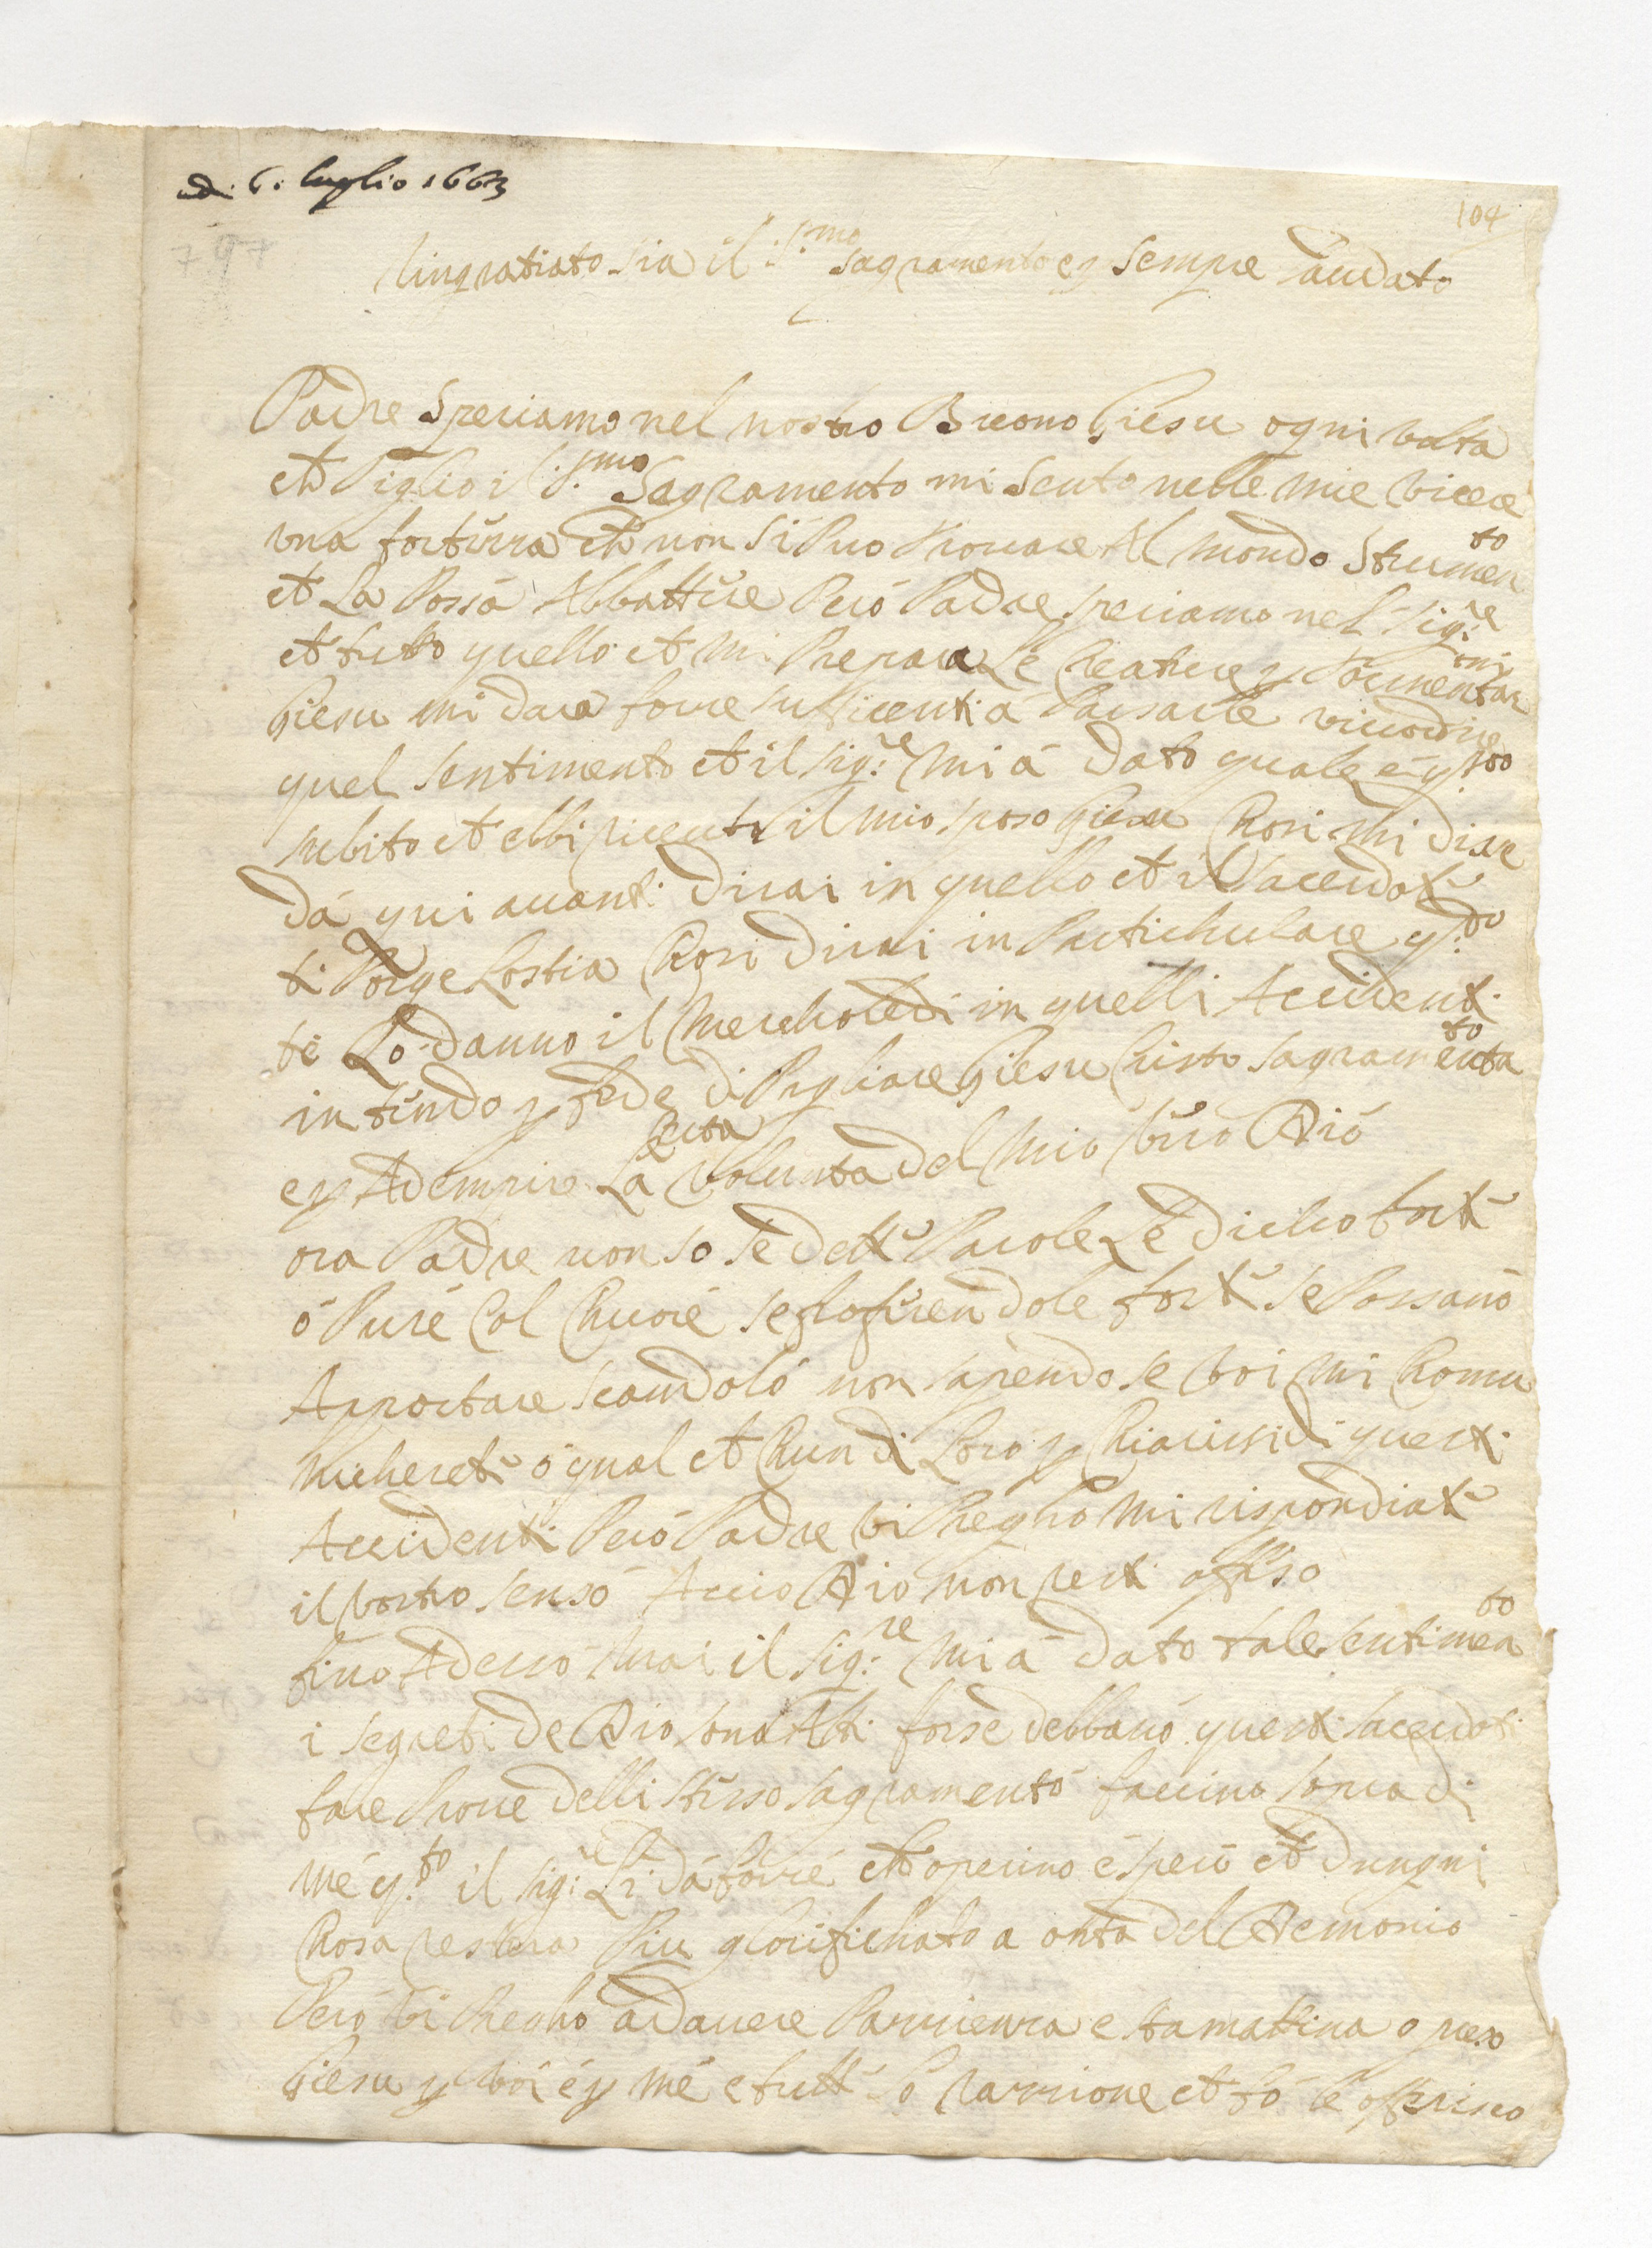 adi 6: luglio 1663
104
797
Ringratiato sia il S:mo sagramento e p sempre laudato
Padre speriamo nel nostro Buono Giesu ogni volta
ch Piglio il S.mo Sagramento mi sento nelle mie vicere
una fortezza ch non si Puo trovare Al mondo Strumento
ch La Possa Abbattere Però Padre speriamo nel Sig:re
ch tutto quello ch mi Prepara Le Creature p tormentarmi
Giesu mi dara forze sufficenti á Passarle
quel sentimento ch il sig:re mi á dato quale é q.sto
subito ch ebbi riceuto il mio sposo Giesu Chosi mi disse
dá qui auanti dirai in quello ch il Sacerdote
ti Porge Lostia Chosi dirai in Partichulare q.do
te Lo danno il Mercholedi in quelli Accidenti
intendo p fede di Pigliare Giesu Cristo sagramentato
e p Adempire La Santa Volunta del Mio Vero Dio
ora Padre non so se dette Parole Le dicho forte
ó Pure Col Chuore se proferendole forte se Possano
Apportare scandolo non sapendo se Voi mi Chomu
nicherete ó qual ch Chun di Loro p Chiarirsi di questi
Accidenti Però Padre vi Pregho mi rispondiate
il vostro senso Accio Dio non resti offeso
fino Adesso Mai il Sig:re mi á dato tale sentimento
i segreti de Dio sono Alti forse debbano questi sacerdoti
fare Prove dello stesso sagramento faccino sopra di
mé q.to il sig:re Li dá forze ch operino é spero ch dungni
Chosa restera Piu glorifichato a onta del Demonio
Però vi Pregho ad auere Pazzienza e stamattina o preso
Giesu p voi é p mé e tutte Le ch fó le offerisco